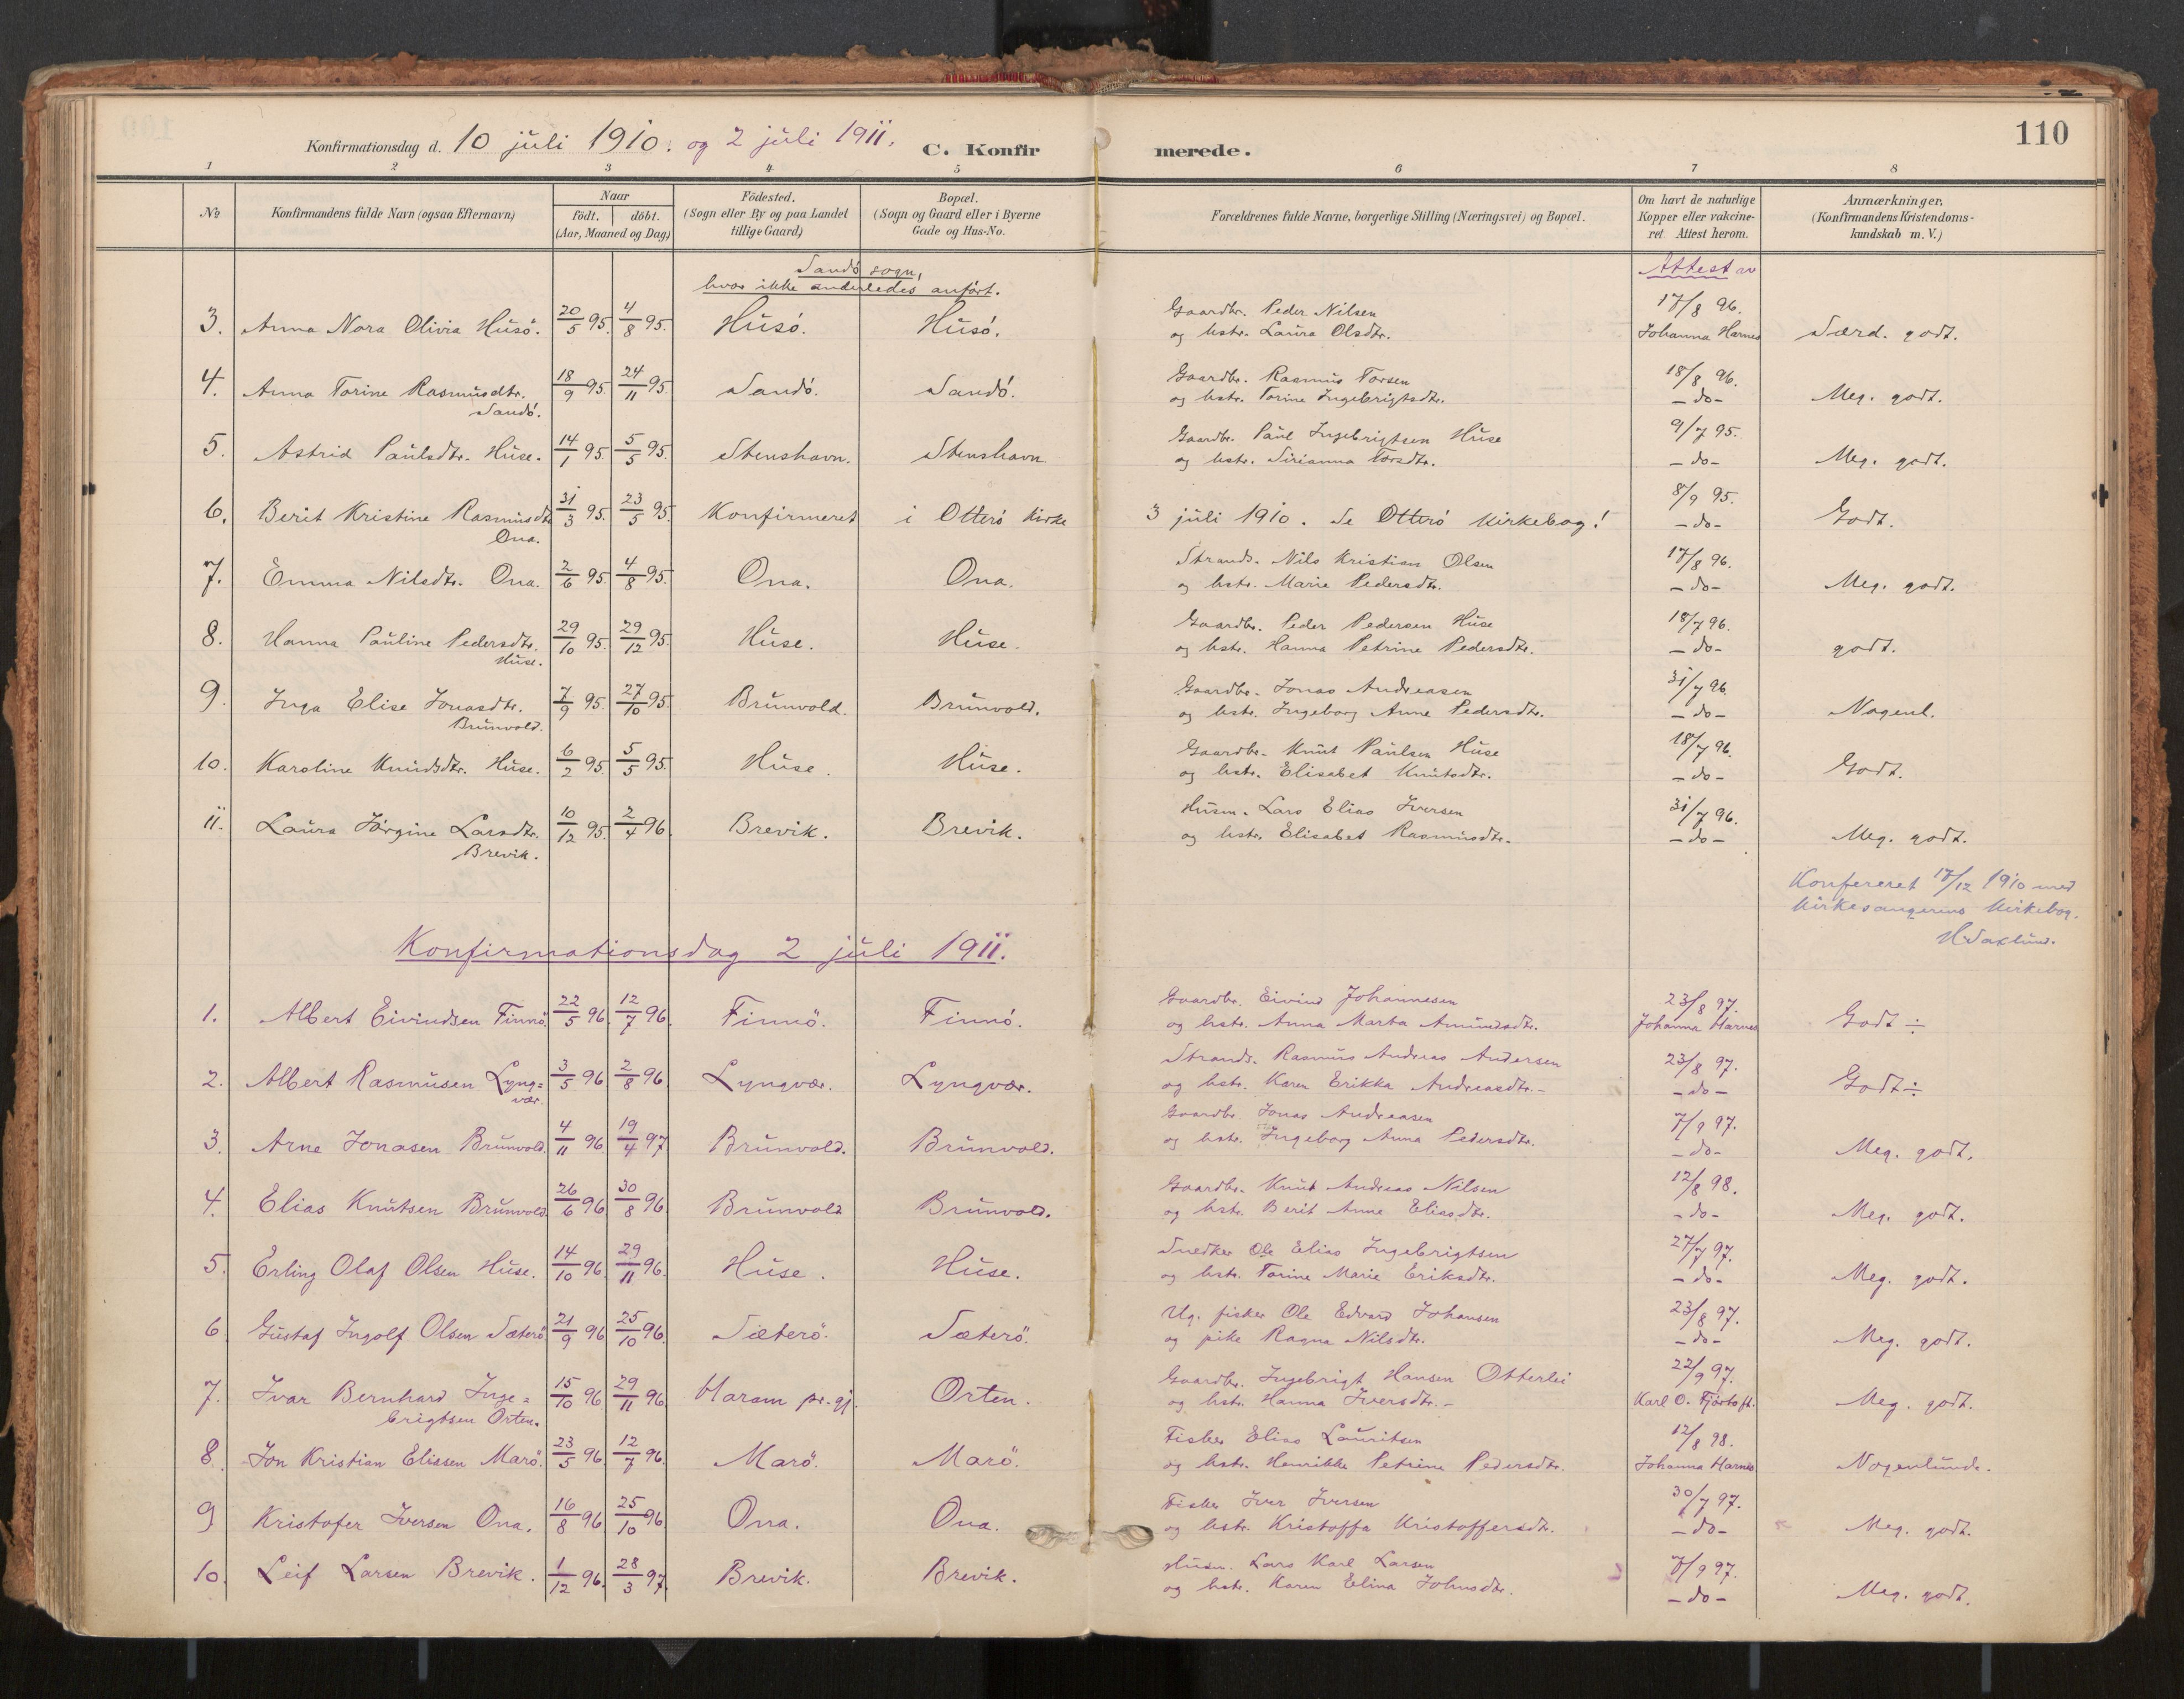 110
Konfirmationsdag d. 10 juli 1910. og 2 juli 1911. C. Konfirmerede.
1 2 3 4 5 6 7 8
No Konfirmandens fulde Navn (ogsaa Efternavn) Naar födt. döbt. (Aar, Maaned og Dag) Födested. (Sogn eller By og paa Landet tillige Gaard) Bopæl. (Sogn og Gaard eller i Byerne Gade og Hus-No. Forældrenes fulde Navne, borgerlige Stilling (Næringsvei) og Bopæl. Om havt de naturlige Kopper eller vakcineret Attest herom. Anmærkninger, (Konfirmandens Kristendomskundskab m. V.)
Sandö sogn,
hvor ikke anderledes anført.
Attest av
3. Anna Nora Olivia Husö. 20/5 95. 4/8 95. Husö. Husö. Gaardbr. Peder Nilsen 17/8 96.
og hstr. Laura Olsdtr. Johanna Harnes Særd. godt.
4. Anna Torine Rasmusdtr. 18/9 95. 24/11 95. Sandö. Sandö. Gaardbr. Rasmus Torsen 18/8 96.
Sandö. og hstr. Torine Ingebrigtsdtr. -do- Meg. godt.
5. Astrid Paulsdtr. Huse. 14/1 95. 5/5 95. Stenshavn. Stenshavn Gaardbr. Paul Ingebrigtsen Huse 9/7 95.
og hstr. Sirianna Torsdtr. -do- Meg. godt.
6. Berit Kristine Rasmusdtr. 31/3 95. 23/5 95. Konfirmeret i Otterö kirke 3 juli 1910. Se Otterö kirkebog! 8/9 95.
Ona. -do- Godt.
7. Emma Nilsdtr. Ona. 2/6 95. 4/8 95. Ona. Ona. Strands. Nils Kristian Olsen 17/8 96.
og hstr. Marie Pedersdtr. -do- Meg. godt.
8. Hanna Pauline Pedersdtr. 29/10 95. 29/12 95. Huse. Huse. Gaardbr. Peder Pedersen Huse 18/7 96.
Huse. og hstr. Hanna Petrine Pedersdtr. -do- godt.
9. Inga Elise Jonasdtr. 7/9 95. 27/10 95. Brunvold. Brunvold. Gaardbr. Jonas Andreasen 31/7 96.
Brunvold. og hstr. Ingeborg Anne Pedersdtr. -do- Nogenl.
10. Karoline Knudsdtr. Huse. 6/2 95. 5/5 95. Huse. Huse. Gaardbr. Knut Paulsen Huse 18/7 96.
og hstr. Elisabet Knutsdtr. -do- Godt.
11. Laura Jörgine Larsdtr. 10/12 95. 2/4 96. Brevik. Brevik. Husm. Lars Elias Iversen 31/7 96.
Brevik. og hstr. Elisabet Rasmusdtr. -do- Meg. godt.
Konfereret 17/12 1910 med
kirkesangerens kirkebog.
Konfirmationsdag 2 juli 1911.
1. Albert Eivindsen Finnö. 22/5 96. 12/7 96. Finnö. Finnö. Gaardbr. Eivind Johannesen 23/8 97.
og hstr. Anna Marta Amundsdtr. Johanna Harnes Godt ÷
2. Albert Rasmusen Lyng= 3/5 96. 2/8 96. Lyngvær. Lyngvær. Strands. Rasmus Andreas Andersen 23/8 97.
vær. og hstr. Karen Erikka Andreasdtr.- -do- Godt ÷
3. Arne Jonasen Brunvold. 4/11 96. 19/4 97. Brunvold. Brunvold. Gaardbr. Jonas Andreasen 7/9 97.
og hstr. Ingeborg Anna Pedersdtr. -do- Meg. godt.
4. Elias Knutsen Brunvold. 26/6 96. 30/8 96. Brunvold Brunvold. Gaardbr. Knut Andreas Nilsen 12/8 98.
og hstr. Berit Anne Eliasdtr. -do- Meg. godt.
5. Erling Olaf Olsen Huse. 14/10 96. 29/11 96. Huse. Huse. Snedker Ole Elias Ingebrigtsen 27/7 97.
og hstr. Torine Marie Eriksdtr. -do- Meg. godt.
6. Gustaf Ingolf Olsen Sæterö 21/9 96. 25/10 96. Sæterö. Sæterö. Ug. fisker Ole Edvard Johansen 23/8 97.
og pike Ragna Nilsdtr. -do- Meg. godt.
7. Ivar Bernhard Inge= 15/10 96. 29/11 96. Haram pr.gj. Orten. Gaardbr. Ingebrigt Hansen Otterlei 22/9 97.
brigtsen Orten. og hstr. Hanna Iversdtr.- Karl O. Fjørtoft. Meg. godt.
8. Jon Kristian Eliasen Marö. 23/5 96. 12/7 96. Marö. Marö. Fisker Elias Lauritsen 12/8 98.
og hstr. Henrikke Petrine Pedersdtr. Johanna Harnes Nogenlunde.
9 Kristofer Iversen Ona. 16/8 96. 25/10 96. Ona. Ona. Fisker Iver Iversen 30/7 97.
og hstr. Kristoffa Kristoffersdtr. -do- Meg. godt.
10. Leif Larsen Brevik. 1/12 96. 28/3 97. Brevik. Brevik. Husm. Lars Karl Larsen 7/9 97.
og hstr. Karen Elina Johnsdtr. -do- Meg. godt.